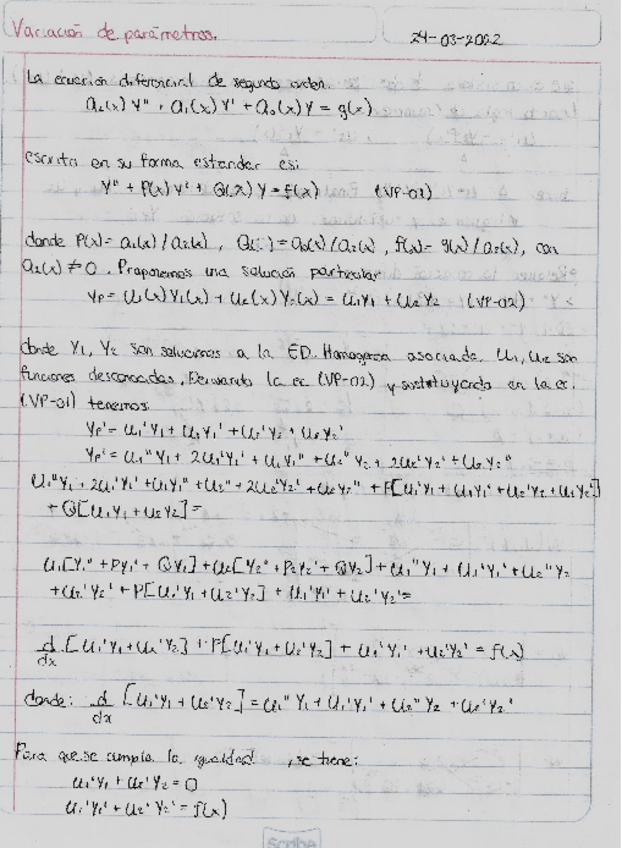 Variación de parámetros.
24-03-2022
La ecuación diferencial de segundo orden.
a₂(x) Y'' + a₁(x) Y' + a₀(x) Y = g(x)
escrita en su forma estandar es:
Y'' + P(x) Y' + Q(x) Y = f(x) (VP-01)
donde P(x) = a₁(x) / a₂(x), Q(x) = a₀(x) / a₂(x), f(x) = g(x) / a₂(x), con
a₂(x) ≠ 0. Proponemos una solución particular
Yp = u₁(x) Y₁(x) + u₂(x) Y₂(x) = u₁Y₁ + u₂Y₂ (VP-02)
donde Y₁, Y₂ son soluciones a la ED. Homogenea asociada. u₁, u₂ son
funciones desconocidas. Derivando la ec. (VP-02) y sustituyendo en la ec.
(VP-01) tenemos
Yp' = u₁'Y₁ + u₁Y₁' + u₂'Y₂ + u₂Y₂'
Yp' = u₁''Y₁ + 2u₁'Y₁' + u₁Y₁'' + u₂''Y₂ + 2u₂'Y₂' + u₂Y₂''
u₁''Y₁ + 2u₁'Y₁' + u₁Y₁'' + u₂'' + 2u₂'Y₂' + u₂Y₂'' + P[u₁'Y₁ + u₁Y₁' + u₂'Y₂ + u₂Y₂']
+ Q[u₁Y₁ + u₂Y₂] =
u₁[Y₁'' + PY₁' + QY₁] + u₂[Y₂'' + P₂Y₂' + QY₂] + u₁''Y₁ + u₁'Y₁' + u₂''Y₂
+ u₂'Y₂' + P[u₁'Y₁ + u₂'Y₂] + u₁'Y₁' + u₂'Y₂' =
d/dx [u₁'Y₁ + u₂'Y₂] + P[u₁'Y₁ + u₂'Y₂] + u₁'Y₁' + u₂'Y₂' = f(x)
donde: d/dx [u₁'Y₁ + u₂'Y₂] = u₁''Y₁ + u₁'Y₁' + u₂''Y₂ + u₂'Y₂'
Para que se cumpla la igualdad, se tiene:
u₁'Y₁ + u₂'Y₂ = 0
u₁'Y₁' + u₂'Y₂' = f(x)
Scribe